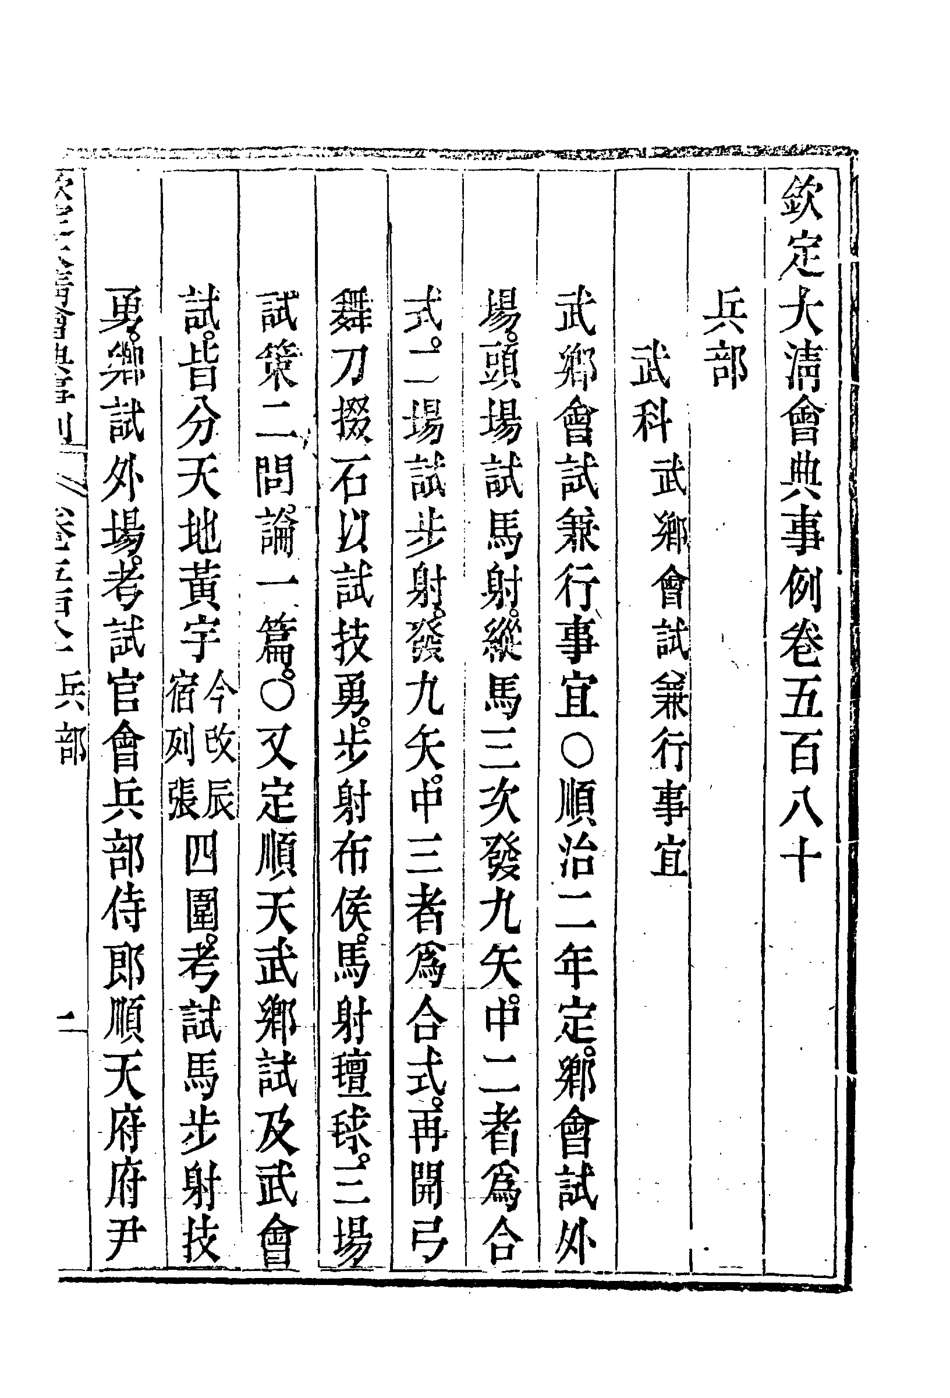 欽定大清會典事例卷五百八十
兵部
武科 武鄉會試兼行事宜
武鄉會試兼行事宜○順治二年定。鄉會試外
場。頭場試馬射。縱馬三次發九矢。中二者爲合
式。二場試步射。發九矢。中三者爲合式。再開弓
舞刀掇石以試技勇。步射布侯。馬射氊毬。三場
試策二問。論一篇。○又定順天武鄉試及武會
試。皆分天地黃宇今改辰宿列張四圍。考試馬步射技
勇。鄉試外場。考試官會兵部侍郎順天府府尹
欽定大清會典事例 卷五百八十 兵部 一